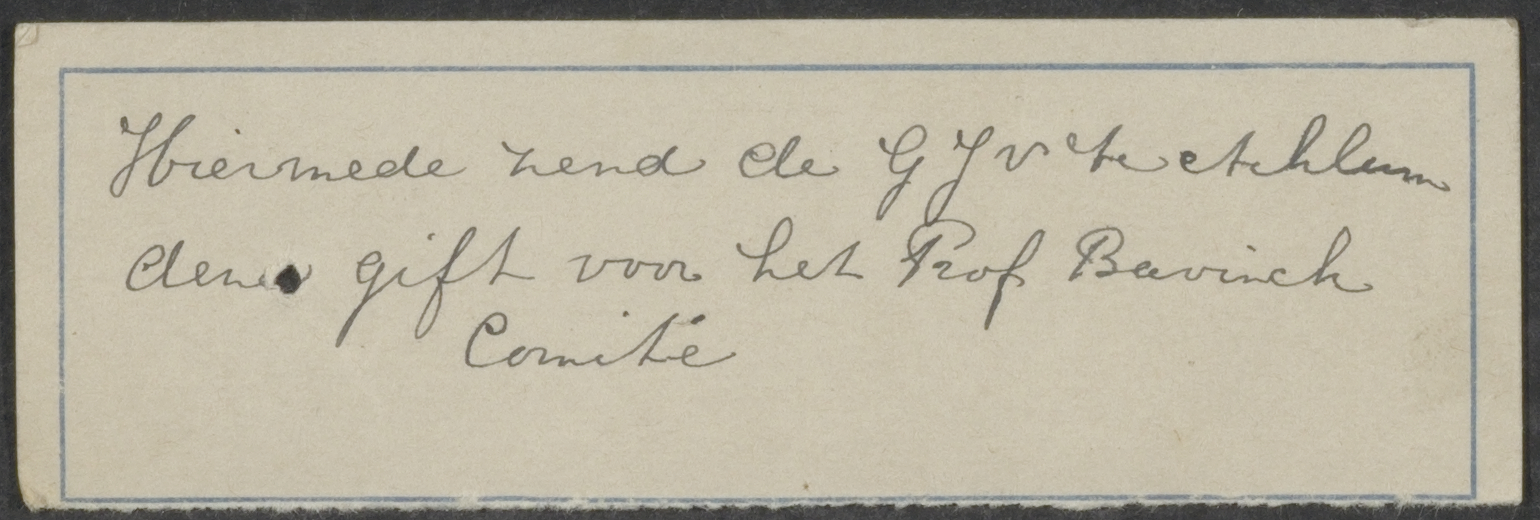 Hiermede zend de G J V te Achlum
den gift voor het Prof Bavinck
Comité